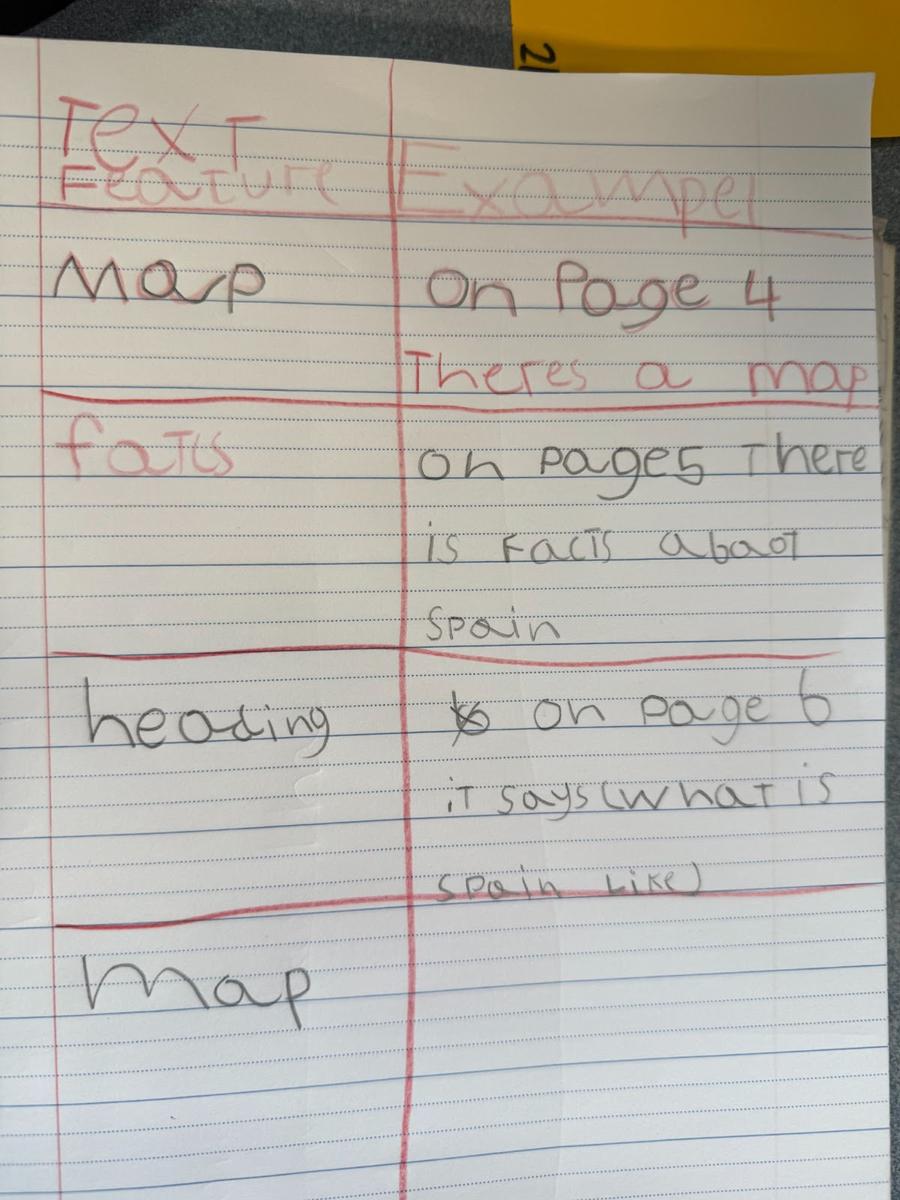 Text
Feature
Exampel
Map
On Page 4
Theres a map
facts
On pages 5 There
is Facts abaot
Spain
heading
on page 6
iT says (what is
spain Like)
map